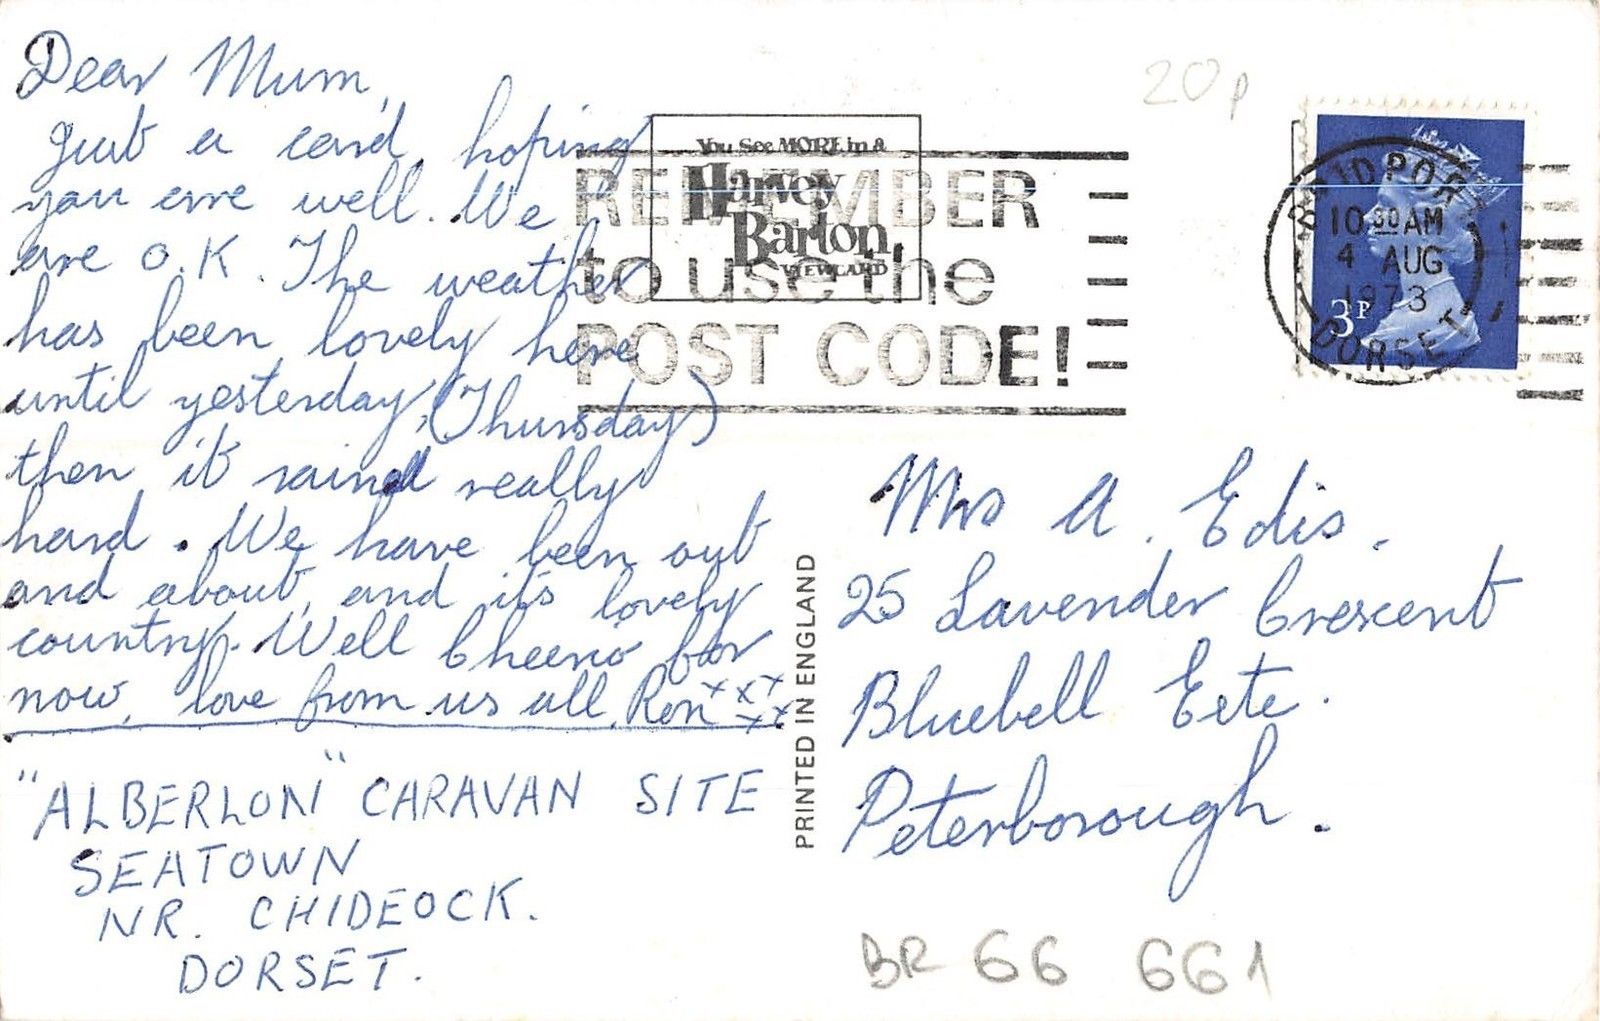 Dear Mum,
Just a card, hoping
you are well. We
are O.K. The weather
has been lovely here
until yesterday, (Thursday)
then it rained really
hard. We have been out
and about, and it's lovely
country. Well Cheerio for
now, love from us all, Ron xxxxx
"ALBERLON" CARAVAN SITE
SEATOWN
NR. CHIDEOCK.
DORSET.
You See MORE in a
Harvey
Barton
VIEWCARD
REMEMBER
to use the
POST CODE!
PRINTED IN ENGLAND
20p
BRIDPORT
10 30 AM
4 AUG
1973
DORSET
3P
Mrs A. Edis.
25 Lavender Crescent
Bluebell Este.
Peterborough.
BR 66 661